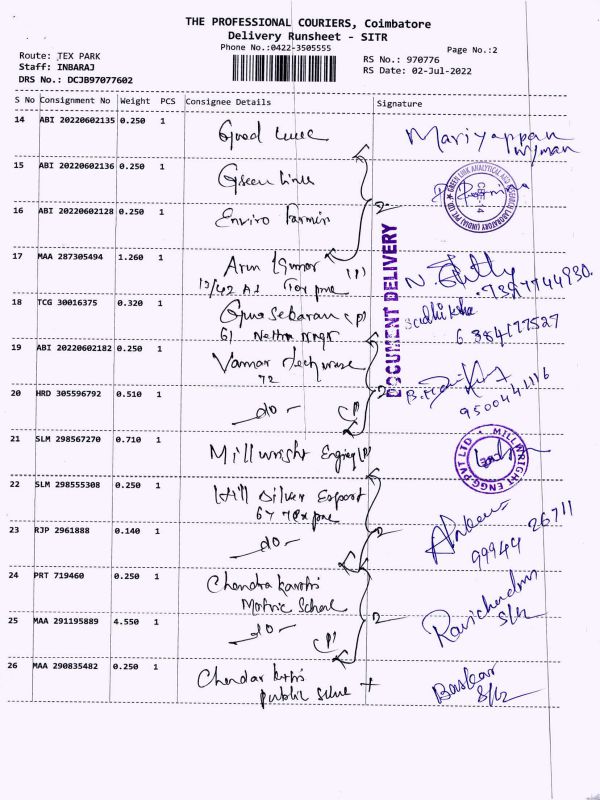 THE PROFESSIONAL COURIERS, Coimbatore
Delivery Runsheet - SITR
Phone No.:0422-3505555
Page No.:2
Route: TEX PARK
RS No.: 970776
Staff: INBARAJ
RS Date: 02-Jul-2022
DRS No.: DCJB97077602
S No Consignment No Weight PCS Consignee Details Signature
14 ABI 20220602135 0.250 1 Good
Mariyappan
15 ABI 20220602136 0.250 1 Green Links
GREEN LINK ANALYTICAL AND RESEARCH LABORATORY (INDIA) PVT LTD
CBE-14
16 ABI 20220602128 0.250 1 Enviro
2
17 MAA 287305494 1.260 1 Arun Kumar (P)
DOCUMENT DELIVERY
18 TCG 30016375 0.320 1 Gunasekaran (P)
61
6384177527
19 ABI 20220602182 0.250 1
72
20 HRD 305596792 0.510 1 -do- (P)
2
9500441116
21 SLM 298567270 0.710 1 Millwright Enging (P)
MILLWRIGHT ENGG PVT LTD
22 SLM 298555308 0.250 1 Hill Silver Export
67
23 RJP 2961888 0.140 1 -do-
2
99944 26711
24 PRT 719460 0.250 1 Chendra
Matric School
25 MAA 291195889 4.550 1 -do- (P)
2
Ravichandran
S/h
26 MAA 290835482 0.250 1 Chendar
public
Baskar
S/h